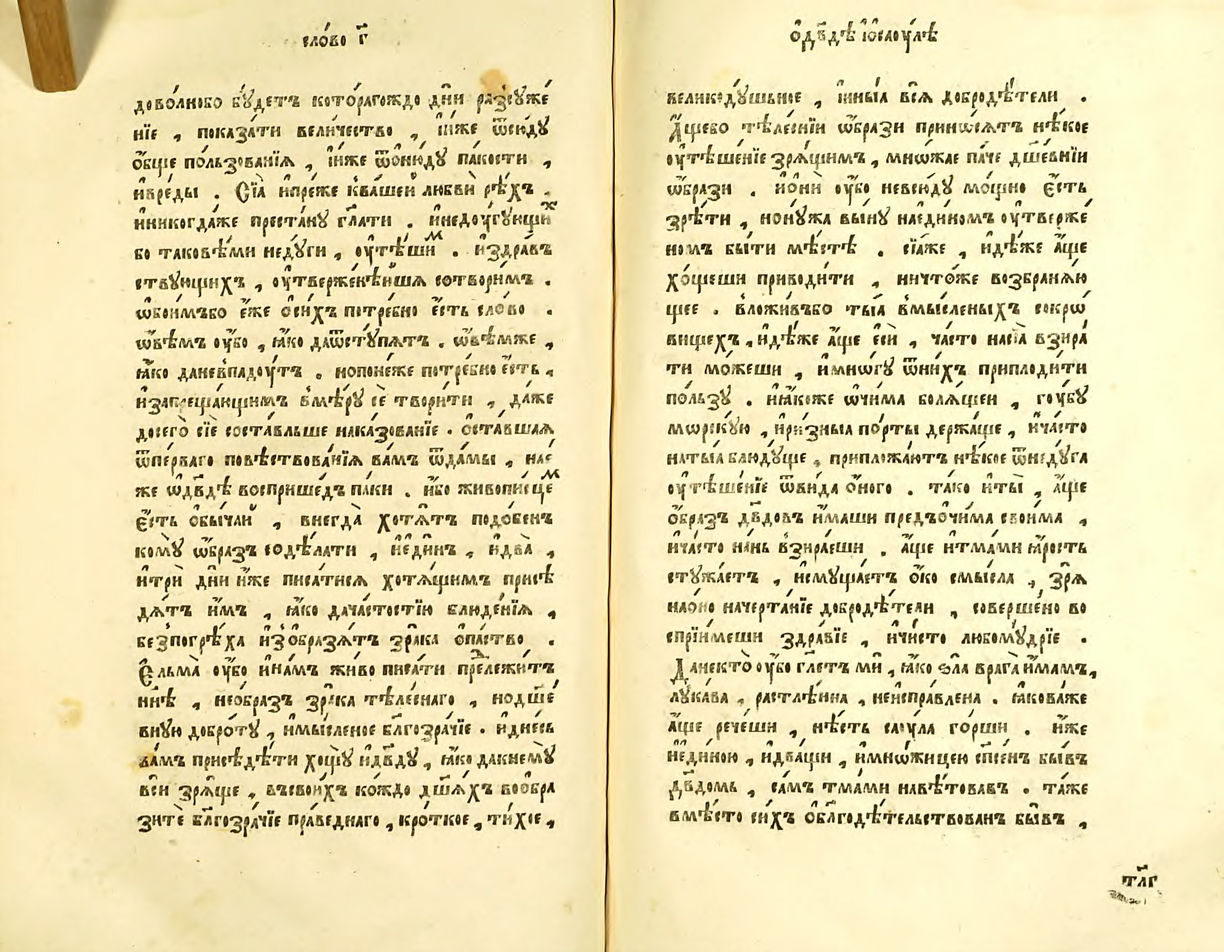 сло́во г҃
дово́лнобо бꙋ́детъ кото́рагождо дн҃и разсꙋже́
нїе , показа́ти вели́чество , и҆́же ѿсю́дꙋ
ѻ҆́бще по́льзованїѧ , и҆́же ѿѻ҆ню́дꙋ па́кости ,
и҆вре́ды . Сїѧ̀ и҆пре́же к̾ва́шей любвѝ рѣ́хъ .
и҆никогда́же преста́нꙋ гл҃ати . и҆недꙋ́гꙋющиⷯ
бо таковѣ́ми недꙋ́ги , оу҆тѣ́шиⷨ . и҆здра́въ
ствꙋющихъ , оу҆твержене́йшѧ сотвори́мъ .
ѡ҆бои́мъбо є҆́же ѻ҆си́хъ потре́бно є҆́сть сло́во .
ѡ҆вѣ́мъ оу҆́бо , ꙗ҆́ко даѿстꙋ́пѧтъ . ѡ҆вѣ́мже ,
ꙗ҆́ко даневпадꙋ́тъ . нопоне́же потре́бно є҆́сть ,
и҆запреща́ющимъ в̾мѣ́рꙋ сѐ твори́ти , да́же
досегѡ̀ сїѐ соста́вльше наказа́нїе . ѻ҆ста́вшаѧ
ѿпе́рваго повѣ́ствованїѧ ва́мъ ѿда́мы , на́е
же ѡ҆дв҃дѣ восприше́дъ па́ки . и҆́бо живопи́сцеⷨ
є҆́сть ѻ҆бы́чай , внегда̀ хотѧ́тъ подо́бенъ
комꙋ̀ ѡ҆́бразъ содѣ́лати , и҆еди́нъ , и҆два̀ ,
и҆трѝ дн҃и и҆́же писа́тисѧ хотѧ́щимъ присѣ
дѧ́тъ и҆̀мъ , ꙗ҆́ко дача́стостїю блюде́нїѧ ,
безпогрѣ́ха и҆з̾ѻбразѧ́тъ зра́ка ѻ҆па́ство .
Є҆льма̀ оу҆́бо и҆на́мъ жи́во писа́ти прележи́тъ
нн҃ѣ , нео́бразъ зра́ка тѣле́снаго , нодш҃е́
внꙋю добро́тꙋ , и҆мы́сленое бл҃гозра́чїе . и҆дне́сь
ва́мъ присѣдѣ́ти хощꙋ̀ и҆дв҃дꙋ , ꙗ҆́ко дакнемꙋ̀
всѝ зрѧ́ще , въсвои́хъ ко́ждо дш҃а́хъ воѡбра
зи́те бл҃гозра́чїе пра́веднаго , кро́ткое , ти́хое ,
ѻ҆дв҃дѣ и҆ѻ҆саꙋ́лѣ
великодꙋ́шьное , и҆ны́ѧ всѧ̀ добродѣ́тели .
А҆́щебо тѣле́снїи ѡ҆́брази принѡ́сѧтъ нѣ́кое
оу҆тѣше́нїе зрѧ́щимъ , мнѡ́жае па́че дш҃е́внїи
ѡ҆́брази . и҆ѻ҆нѝ оу҆́бо невсю́дꙋ мо́щно є҆́сть
зрѣ́ти , нонꙋ́жа вы́нꙋ наеди́номъ оу҆тверже́
номъ бы́ти мѣ́стѣ . сїѧ́же , и҆дѣ́же а҆́ще
хо́щеши приводи́ти , ничто́же возбранѧ́ю
щее . вложи́въбо ты́ѧ вмы́сленыхъ сокрѡ́
вищехъ , и҆дѣ́же а҆́ще є҆сѝ , ча́сто насїѧ̀ взира́
ти мо́жеши , и҆мно́гꙋ ѿни́хъ приплоди́ти
по́льзꙋ . и҆ꙗ҆́коже ѻ҆чи́ма болѧ́щеи , го́убꙋ
морскꙋ́ю , и҆ри́зныѧ по́рты держа́ще , и҆ча́сто
наты́ѧ блюдꙋ́ще , приложа́ютъ нѣ́кое ѿнедꙋ́га
оу҆тѣше́нїе ѿви́да ѻ҆́ного . та́ко и҆ты̀ , а҆́ще
ѻ҆́бразъ дв҃довъ и҆́маши предъѻ҆чи́ма свои́ма ,
и҆ча́сто на́нь взира́еши . а҆́ще и҆тма́ми ꙗ҆́рость
стꙋжа́етъ , и҆смꙋща́етъ ѻ҆́ко смы́сла , зрѧ̀
наѻ҆́но начерта́нїе добродѣ́тели , соверше́но во
спрїи́меши здра́вїе , и҆чи́сто любомꙋ́дрїе .
Данекто̀ оу҆́бо гл҃етъ мѝ , ꙗ҆́ко ѕла̀ врага̀ и҆́мамъ ,
лꙋка́ва , растлѣ́нна , неиспра́влена . ꙗ҆кова́же
а҆́ще рече́ши , нѣ́сть саꙋ́ла го́рши . и҆́же
не҆ди́ною , и҆два́щи , и҆мно́жицею сп҃се́нъ бы́въ
дв҃домь , са́мъ тма́ми навѣ́товавъ . та́же
вмѣ́сто си́хъ ѻ҆бл҃годѣ́тельствованъ бы́въ ,
тл҃г